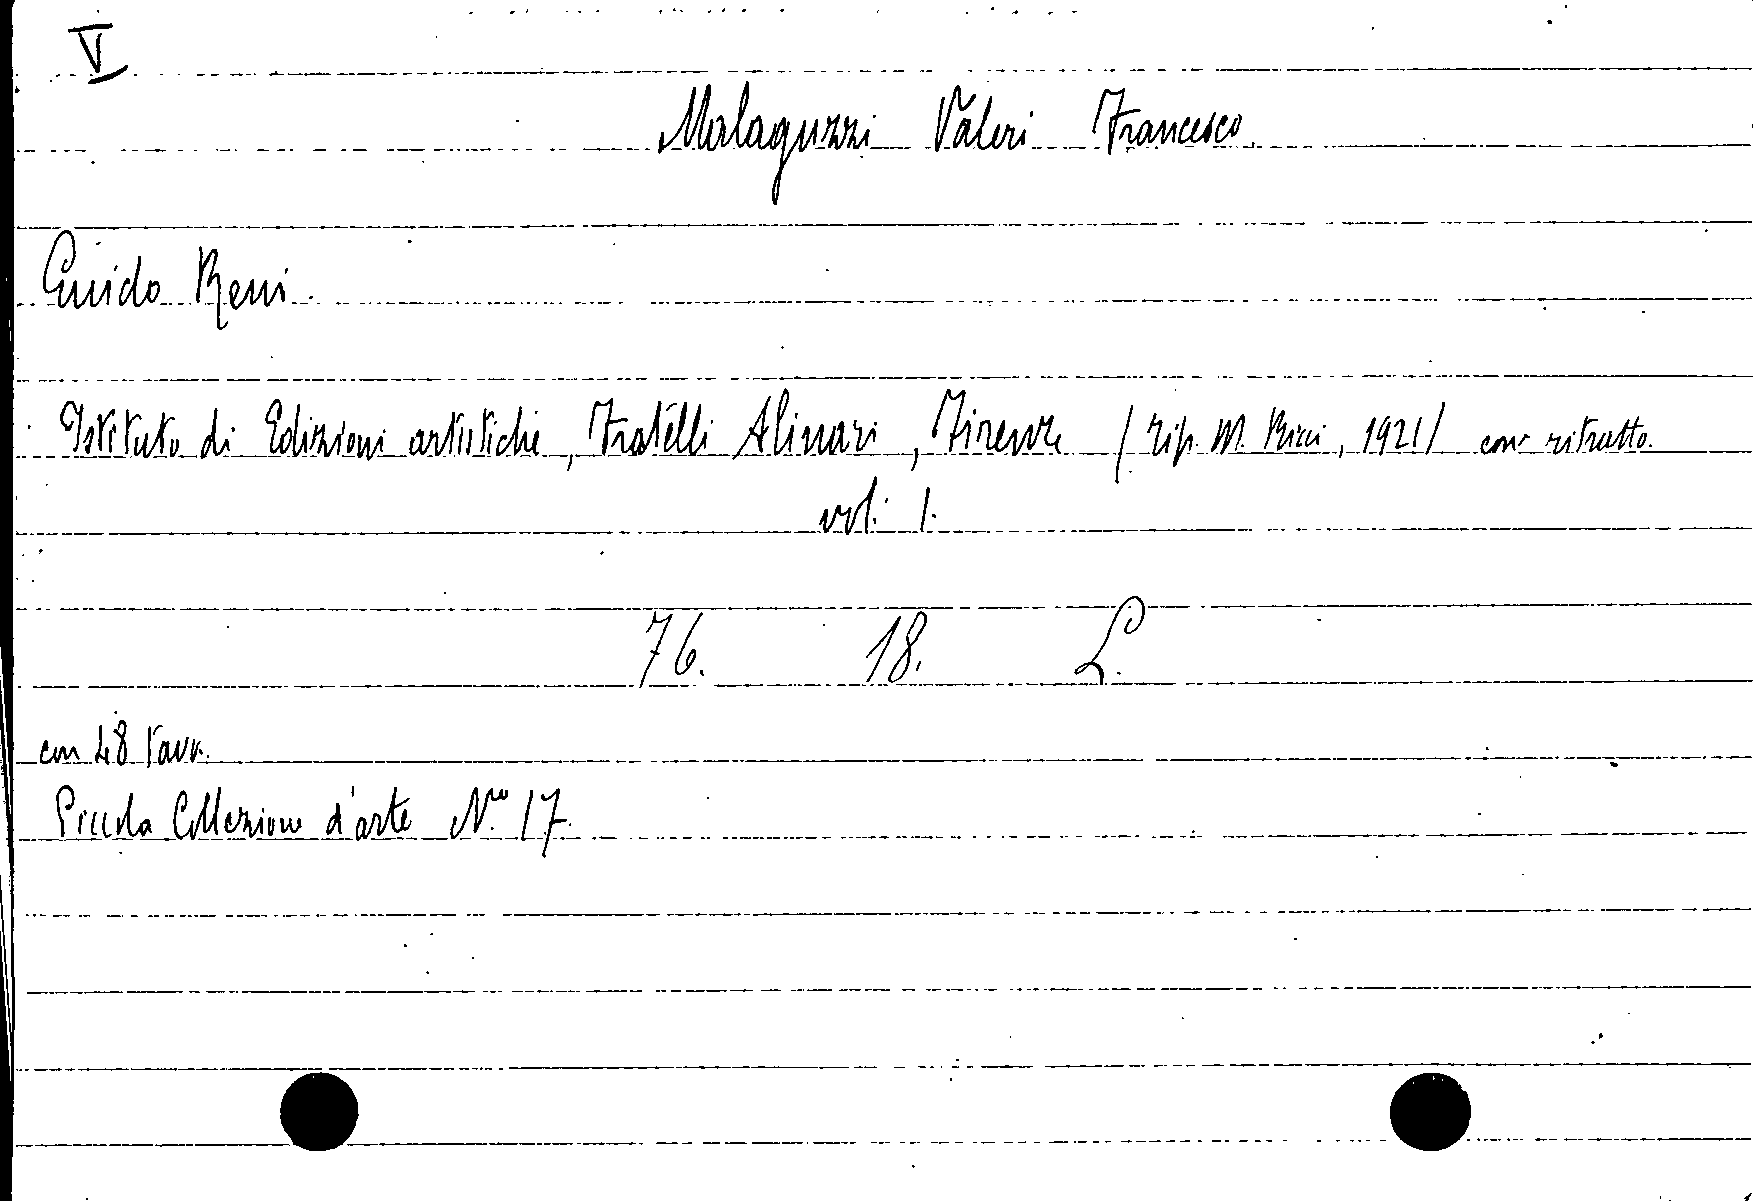 V
Malaguzzi Valeri Francesco.
Guido Reni.
Istituto di Edizioni artistiche, Fratelli Alinari, Firenze (tip. M. Ricci, 1921) con ritratto.
vol. 1.
76. 18. L.
con 48 tavv.
Piccola Collezione d'arte N.ro 17.